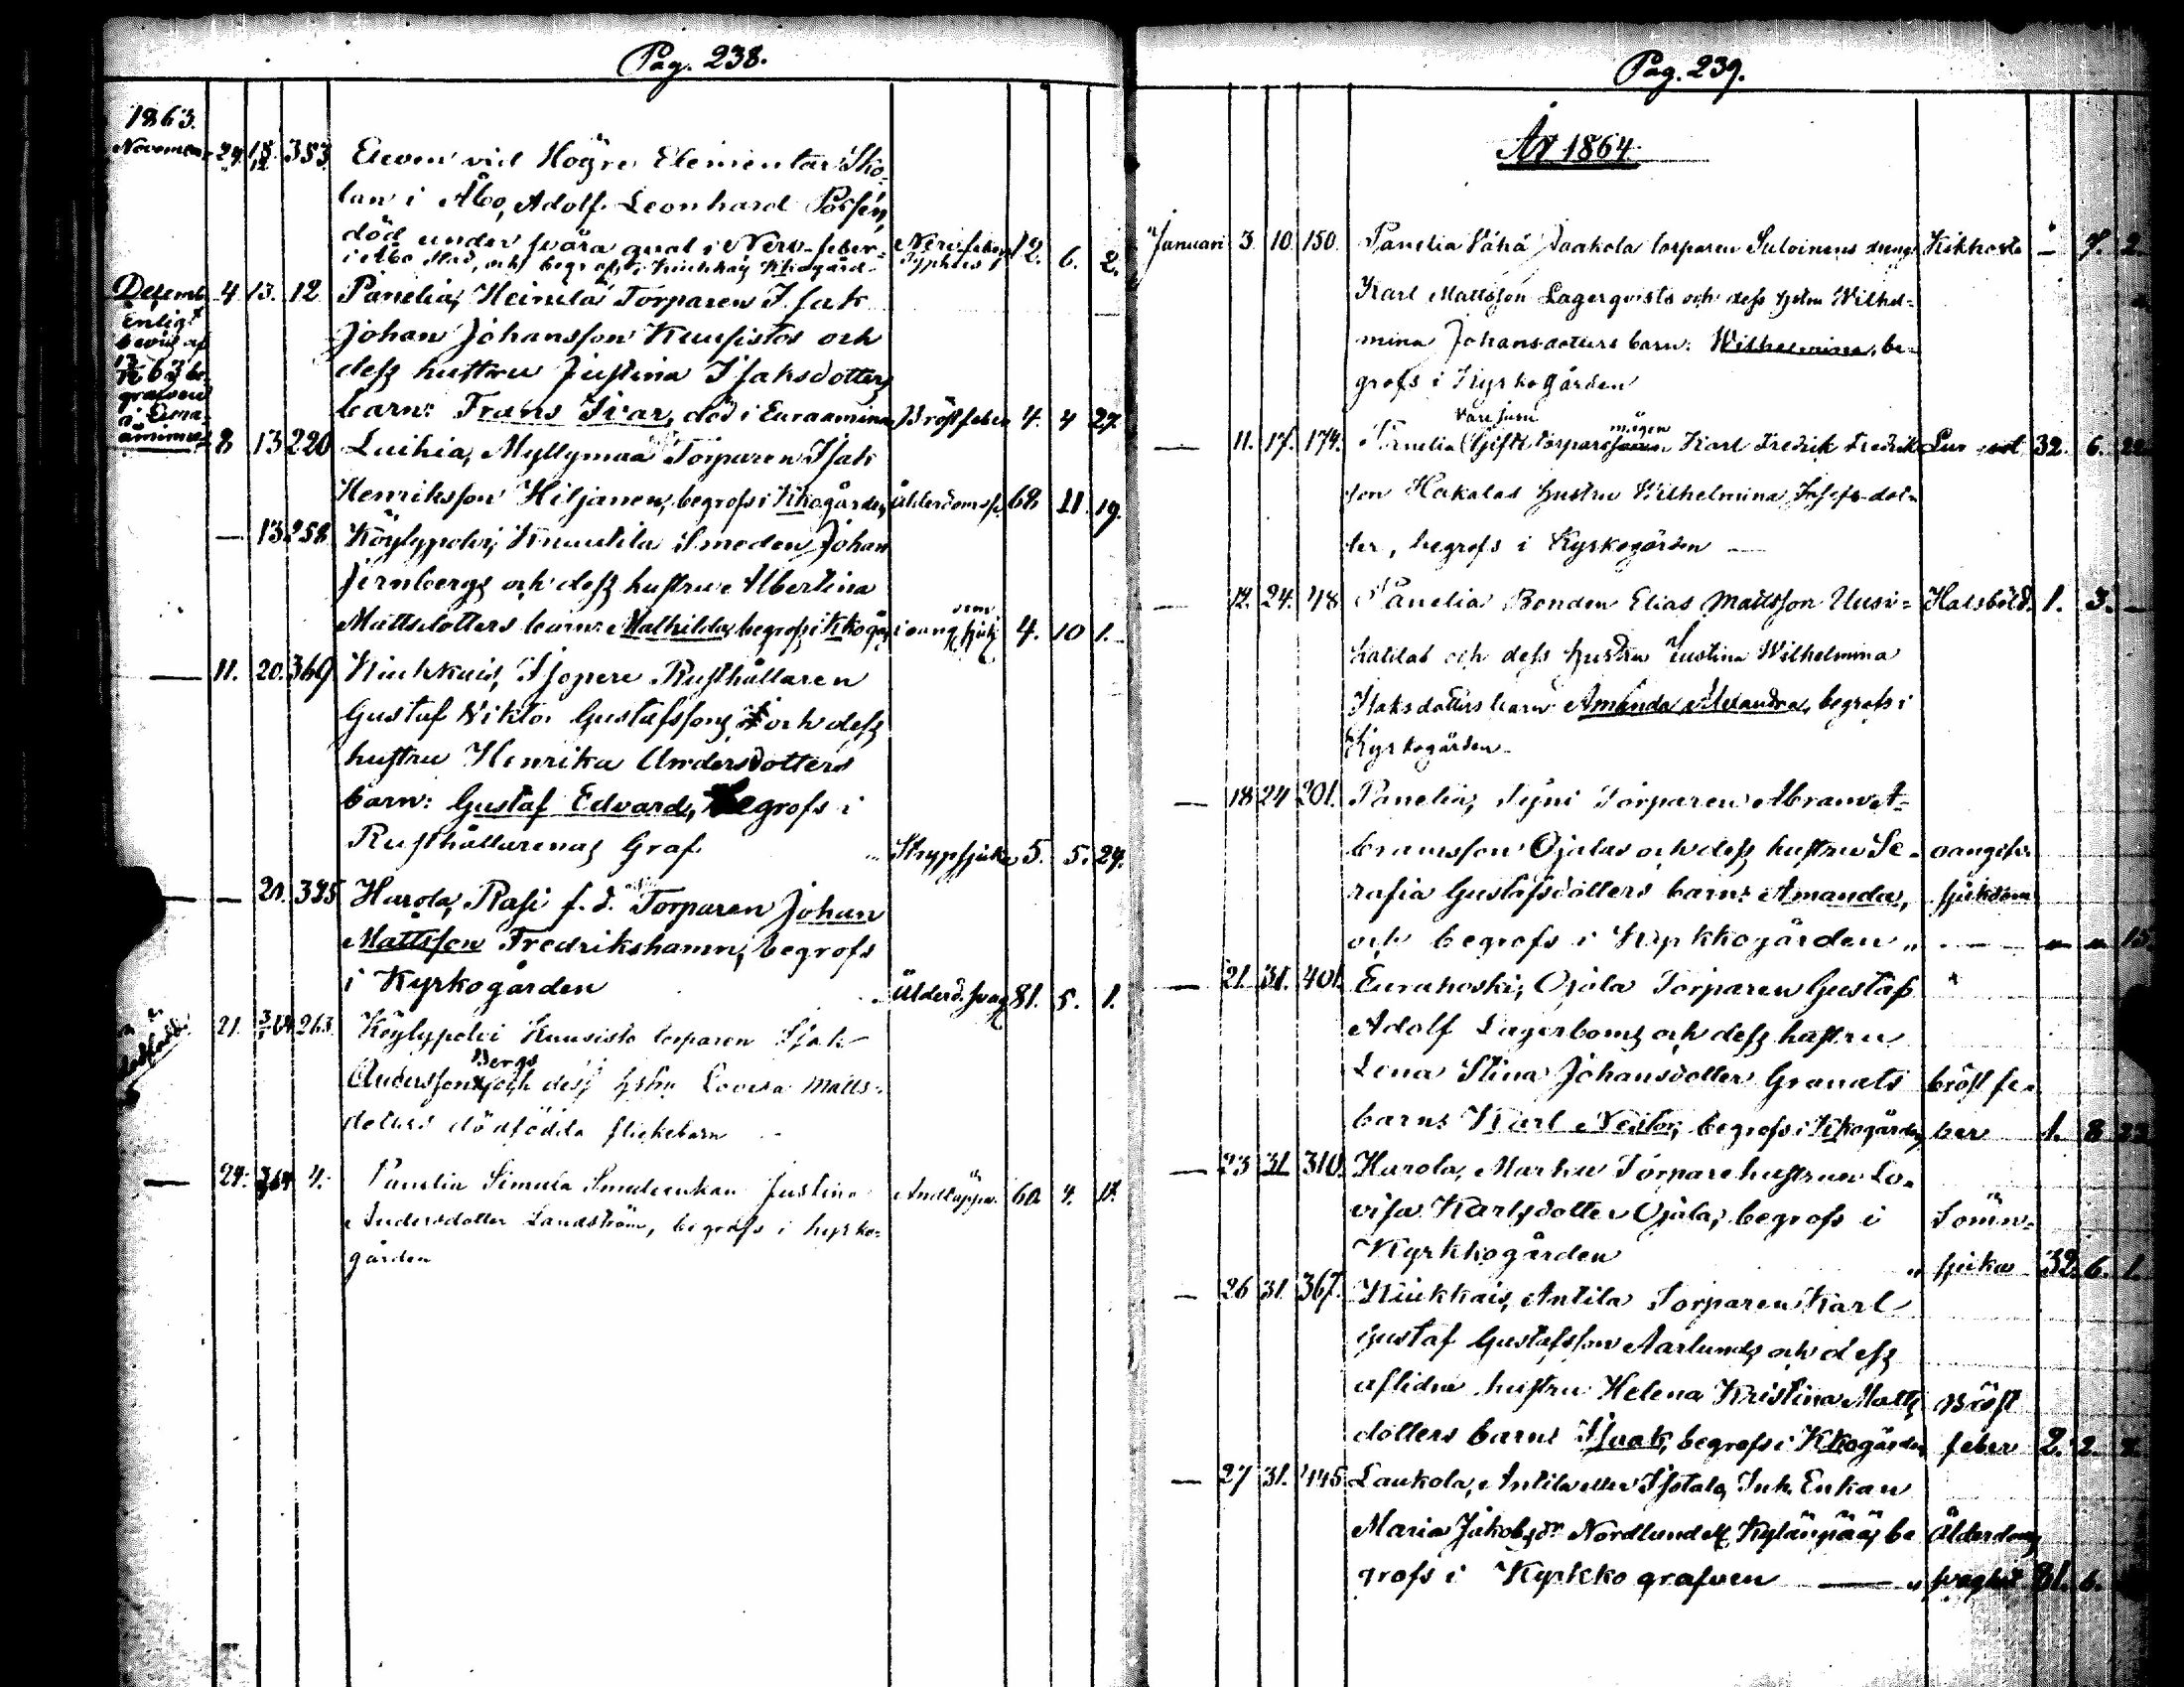 Pag. 238.
1863.
November 24. 18/12 353. Eleven vid Högre Elementar Sko-
lan i Åbo, Adolf Leonhard Possén,
död under svåra qual i Nerv-feber- Nervfeber 12. 6. 2.
i Åbo stad, och begrofs i Kiukkais Kkogård. Typhus
Desemb. 4 13. 12 Panelia, Heinilä Torparen Isak
Enligt
bevis af
be-
grafven
i Eura-
åminne
Johan Johansson Kuusistos och
dess hustru Justina Isaksdotters
barn: Frans Ivar, död i Euraaminne Bröstfeber 4. 4 27.
8 13 220 Luihia, Myllymaa Torparen Isak
Henriksson Hiljanen, begrofs i Kkogården ålderdomsv. 68 11 19.
— 13 258 Köylypolvi, Knuutila Smeden Johan
Jernbergs och dess hustru Albertina
Mattsdotters barn: Mathilda, begrofs i Kkogå 4. 10 1.
— 11. 20. 369 Kiukkais, Isopere Rusthållaren
Gustaf Viktor Gustafssons och dess
hustru Henrika Andersdotters
barn: Gustaf Edvard, begrofs i
Rusthållarenas Graf. Strypsjuka 5. 5. 24.
— 20. 385 Harola, Rasi f. d. Torparen Johan
Mattsson Fredrikshamn, begrofs
i Kyrkogården Ålderd. svag 81. 5. 1.
21. 263. Köylypolvi Kuusisto torparen Isak
Bergs
Anderssons och dess hstru Lovisa Matts-
doters dödfödda flickebarn
— 24. 4. Panelia Simula Smedenkan Justina Andtäppa. 60 4.
Andersdotter Landström, begrofs i kyrko-
gården
Pag. 239.
År 1864.
Januari 3. 10. 150. Panelia Vähä Jaakola torparen Suloinens dräng Kikhosta — 7. 2.
Karl Mattsson Lagerqvists och dess hstru Wilhel-
mina Johansdoters barn: Wilhelmina, be-
grofs i Kyrkogården
— 11. 17. 174. Panelia torpare mågen Karl Fredrik Fredriks 32. 6.
son Hakalas hustru Wilhelmina Josefsdot-
ter, begrofs i Kyrkogården —
— 12. 24. 48 Panelia Bonden Elias Mattsson Uusi- Halsböld. 1. 3. —
talos och dess hustru Justina Wilhelmina
Isaksdotters barn Amanda Alexandra, begrofs i
Kyrkogården.
— 18 24 201. Panelia, Torparen Abram A-
bramsson Ojalas och dess hustru Se-
rafia Gustafsdotters barn: Amanda, sjukdom
och begrofs i Kyrkkogården „ — — 15.
— 21. 31. 401. Eurakoski, Ojala Torparen Gustaf
Adolf Lagerboms och dess hustru
Lena Stina Johansdotter Granats bröst fe-
barn: Karl Nestor, begrofs i Kkogården ber 1. 8
— 23 31 310. Harola, Marku Torparehustrun Lo-
visa Karlsdotter Ojala, begrofs i
Kyrkkogården „ sjuka 32. 6. 1.
— 26 31. 367. Kiukkais, Antila Torparen Karl
Gustaf Gustafsson Aarlunds och dess
aflidne hustru Helena Kristina Matts Bröst
dotters barn: Isaak, begrofs i Kkogården feber 2. 2.
— 27 31. 445 Laukola, Antila eller Isotalo, Inh. Enkan
Maria Jakobsdr Nordlund Kylänpää, be Ålderdoms
grofs i Kyrkko grafven — „ svaghet 81. 6.